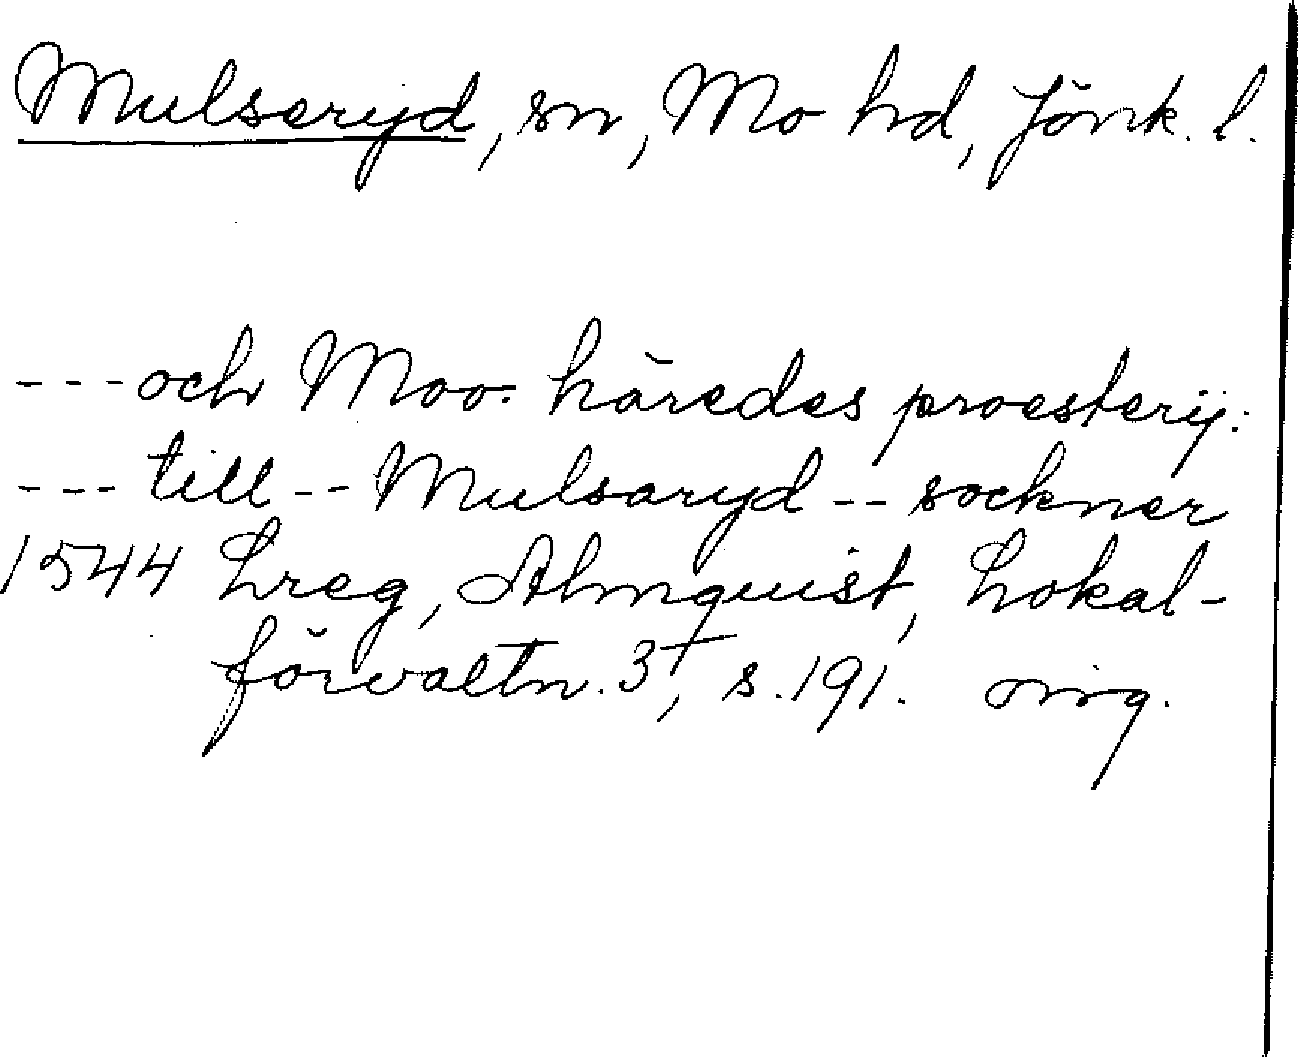 Mulseryd, sn, Mo hd, Jönk. l.
--- och Moo häredes proesterij:
--- till -- Mulsaryd -- sockner
1544 Lreg, Almquist, Lokal-
förvaltn. 3, s. 191.